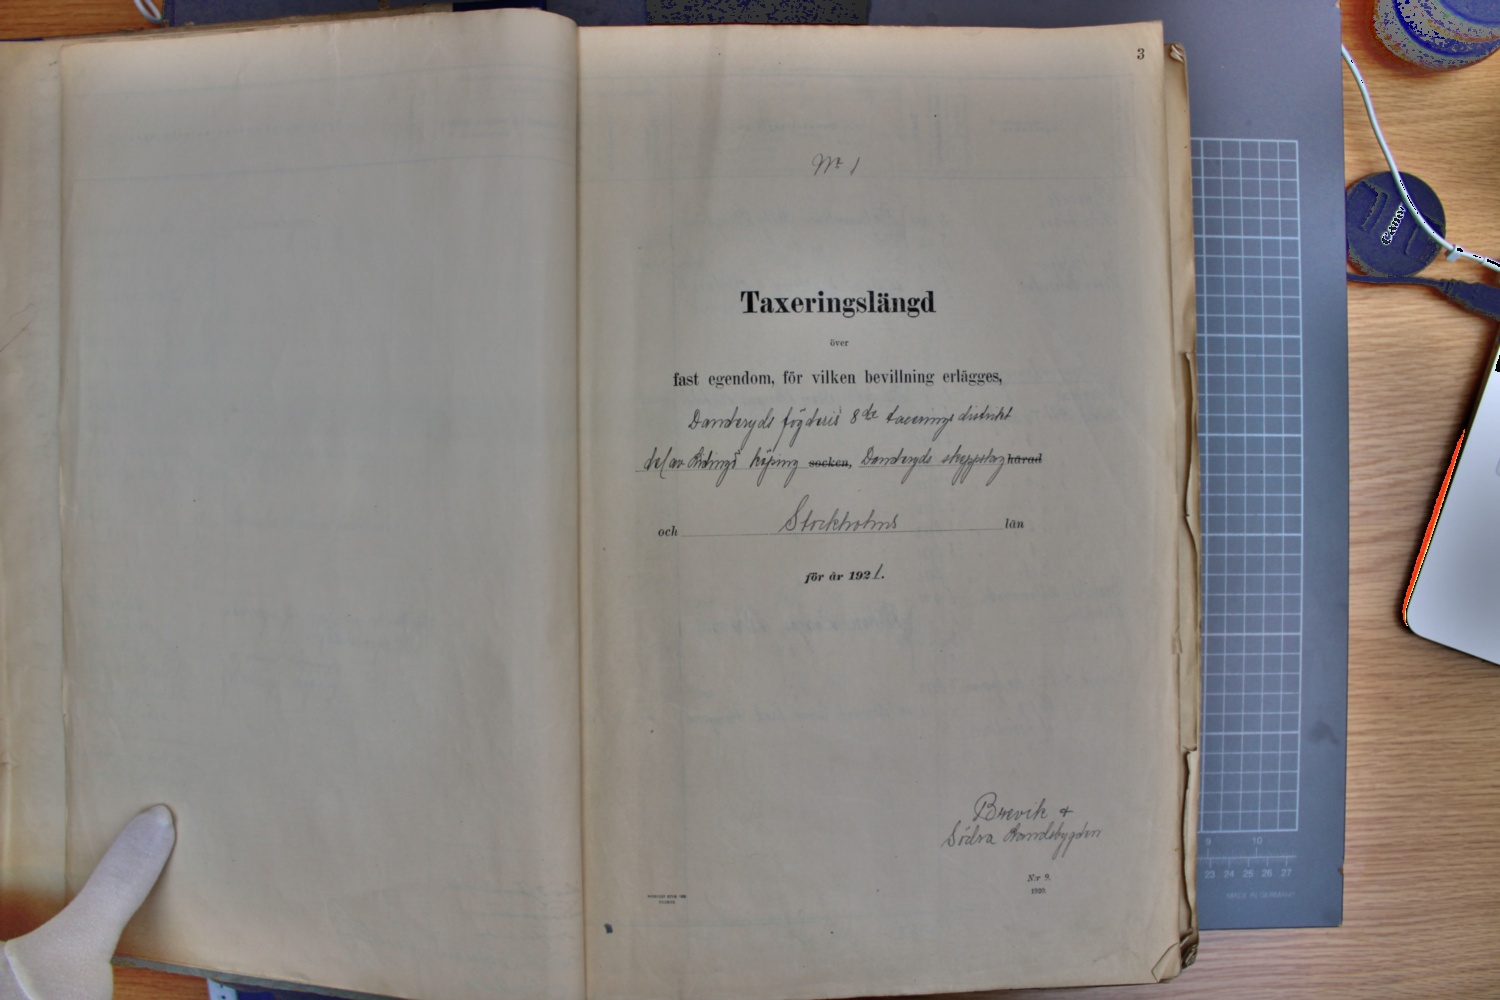 3
Nr 1
Taxeringslängd
över
fast egendom, för vilken bevillning erlägges,
Danderyds fögderis 8de taxeringsdistrikt
del av Lidingö köping socken, Danderyds skeppslag härad
och Stockholms län
för år 1921.
Brevik &
Södra Landsbygden
N:r 9.
1920.
9 10
23 24 25 26 27